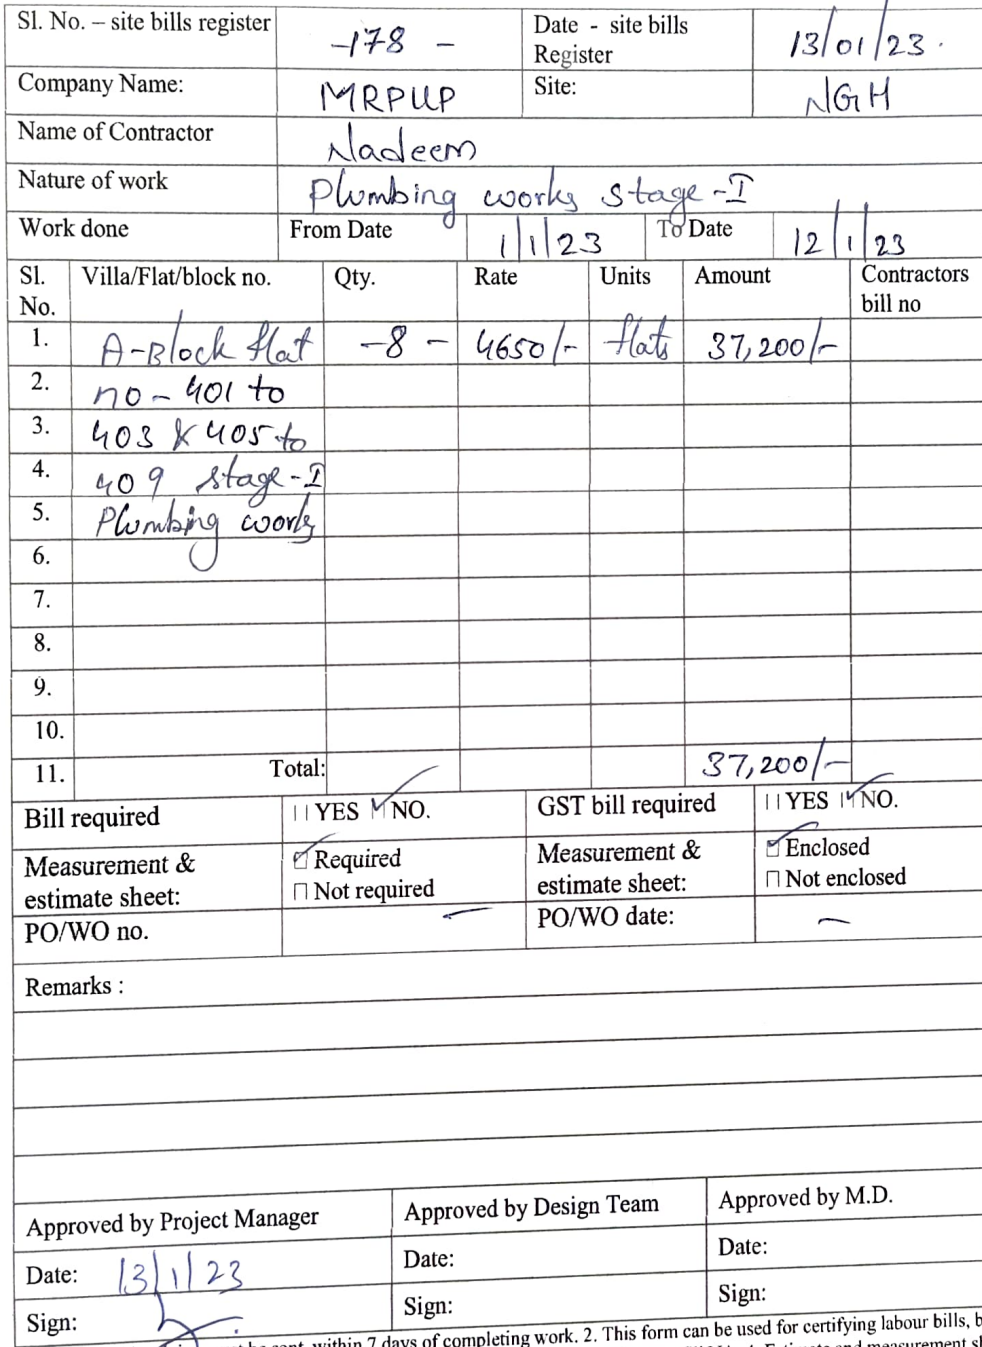 Sl. No. – site bills register -178 - Date - site bills Register 13/01/23.
Company Name: MRPUP Site: NGH
Name of Contractor Nadeem
Nature of work Plumbing works stage-I
Work done From Date 1/1/23 To Date 12/1/23
Sl. No. Villa/Flat/block no. Qty. Rate Units Amount Contractors bill no
1. A-Block flat -8- 4650/- flats 37,200/-
2. no-401 to
3. 403 & 405 to
4. 409 stage-I
5. Plumbing works
6.
7.
8.
9.
10.
11. Total: 37,200/-
Bill required YES NO. GST bill required YES NO.
Measurement & estimate sheet: Required Measurement & estimate sheet: Enclosed
Not required Not enclosed
PO/WO no. – PO/WO date: –
Remarks :
Approved by Project Manager Approved by Design Team Approved by M.D.
Date: 13/1/23 Date: Date:
Sign: Sign: Sign:
within 7 days of completing work. 2. This form can be used for certifying labour bills,